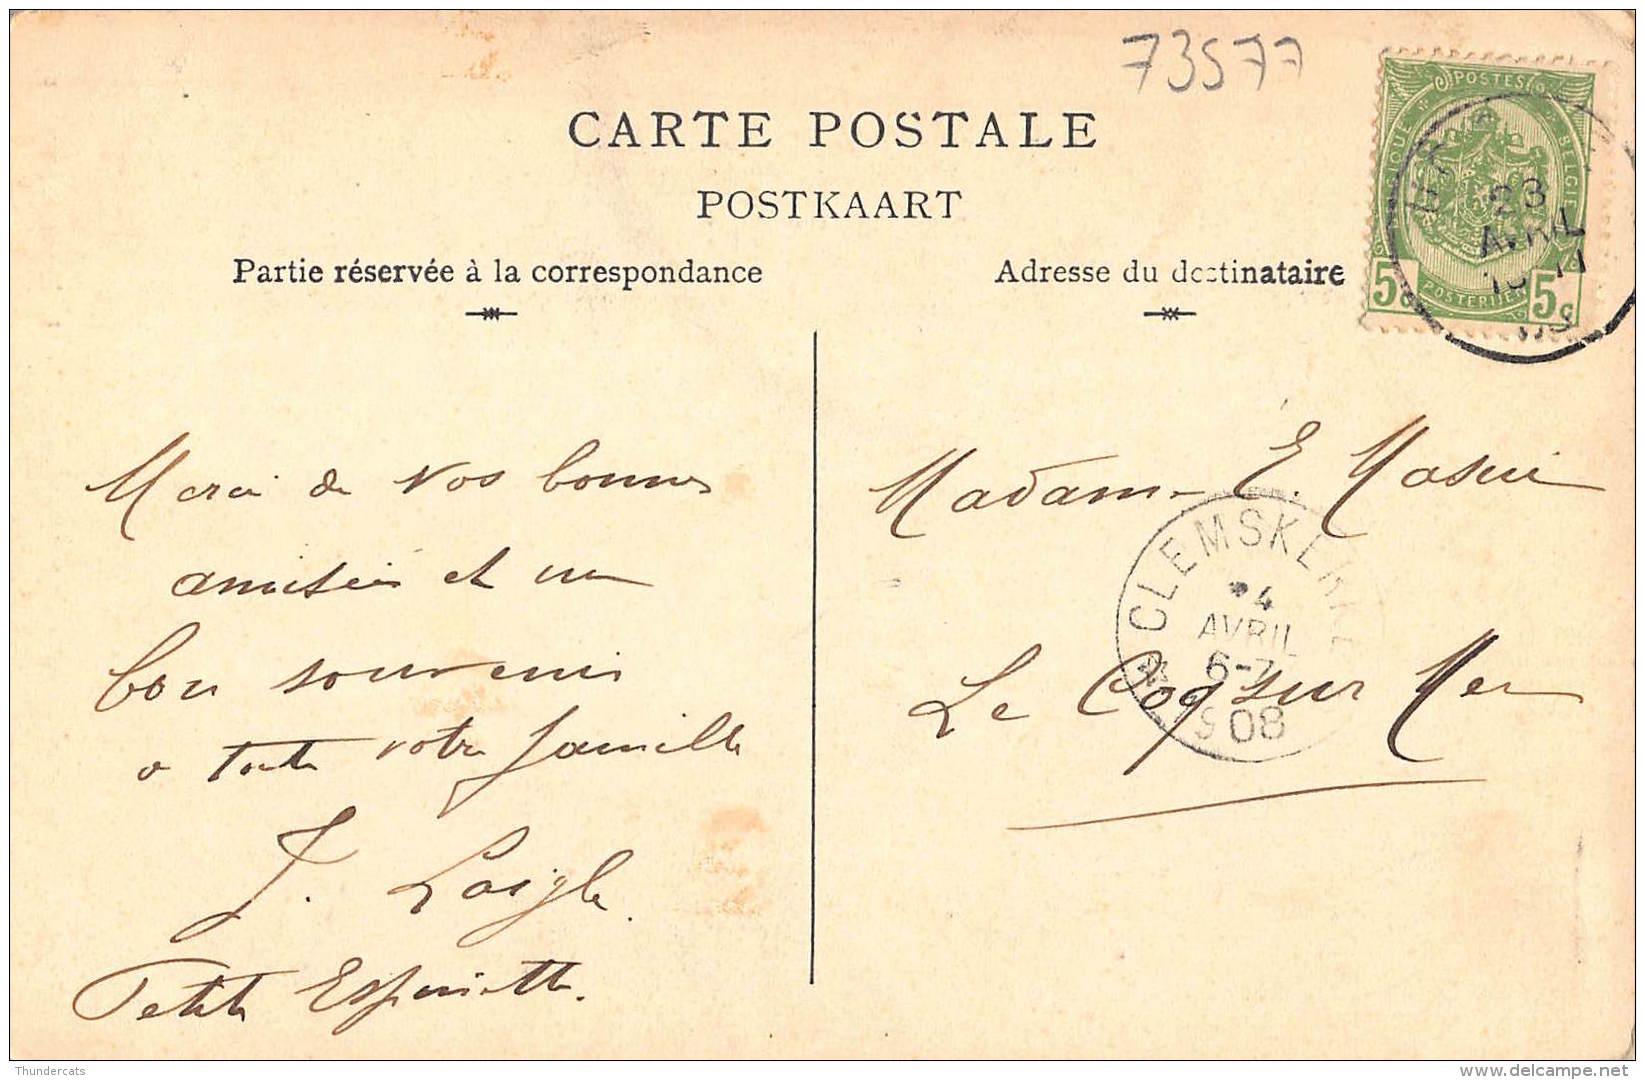 73577
CARTE POSTALE
POSTKAART
Partie réservée à la correspondance
Adresse du destinataire
POSTES
BELGIQUE
BELGIE
POSTERIJEN
5c 5c
23
AVRIL
08
Merci de vos bonnes
amitiés et un
bon souvenir
a toute votre famille
J. Laigle.
Petite Espinette.
Madame E. Masui
Le Coq sur Mer
CLEMSKERKE
4
AVRIL
6-7
1908
Thundercats
delcampe.net